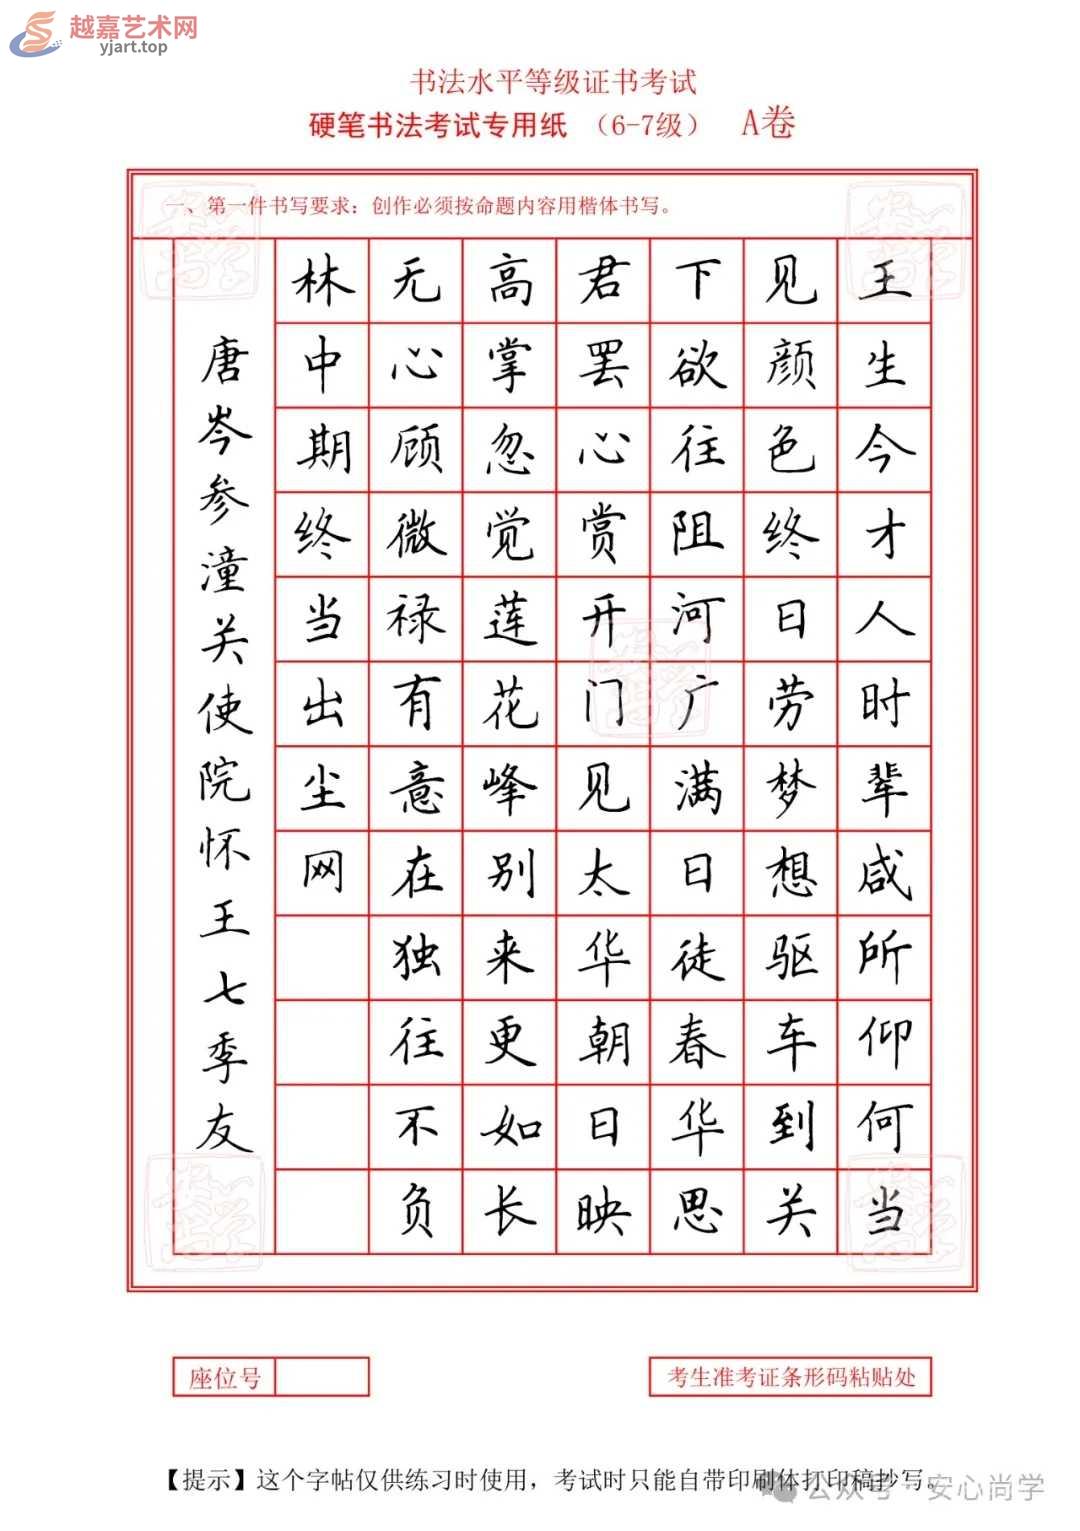 越嘉艺术网
yjart.top
书法水平等级证书考试
硬笔书法考试专用纸 （6-7级） A卷
一、第一件书写要求：创作必须按命题内容用楷体书写。
王生今才人时辈咸所仰何当
见颜色终日劳梦想驱车到关
下欲往阻河广满日徒春华思
君罢心赏开门见太华朝日映
高掌忽觉莲花峰别来更如长
无心顾微禄有意在独往不负
林中期终当出尘网
唐岑参潼关使院怀王七季友
座位号
考生准考证条形码粘贴处
【提示】这个字帖仅供练习时使用，考试时只能自带印刷体打印稿抄写。
公众号·安心尚学